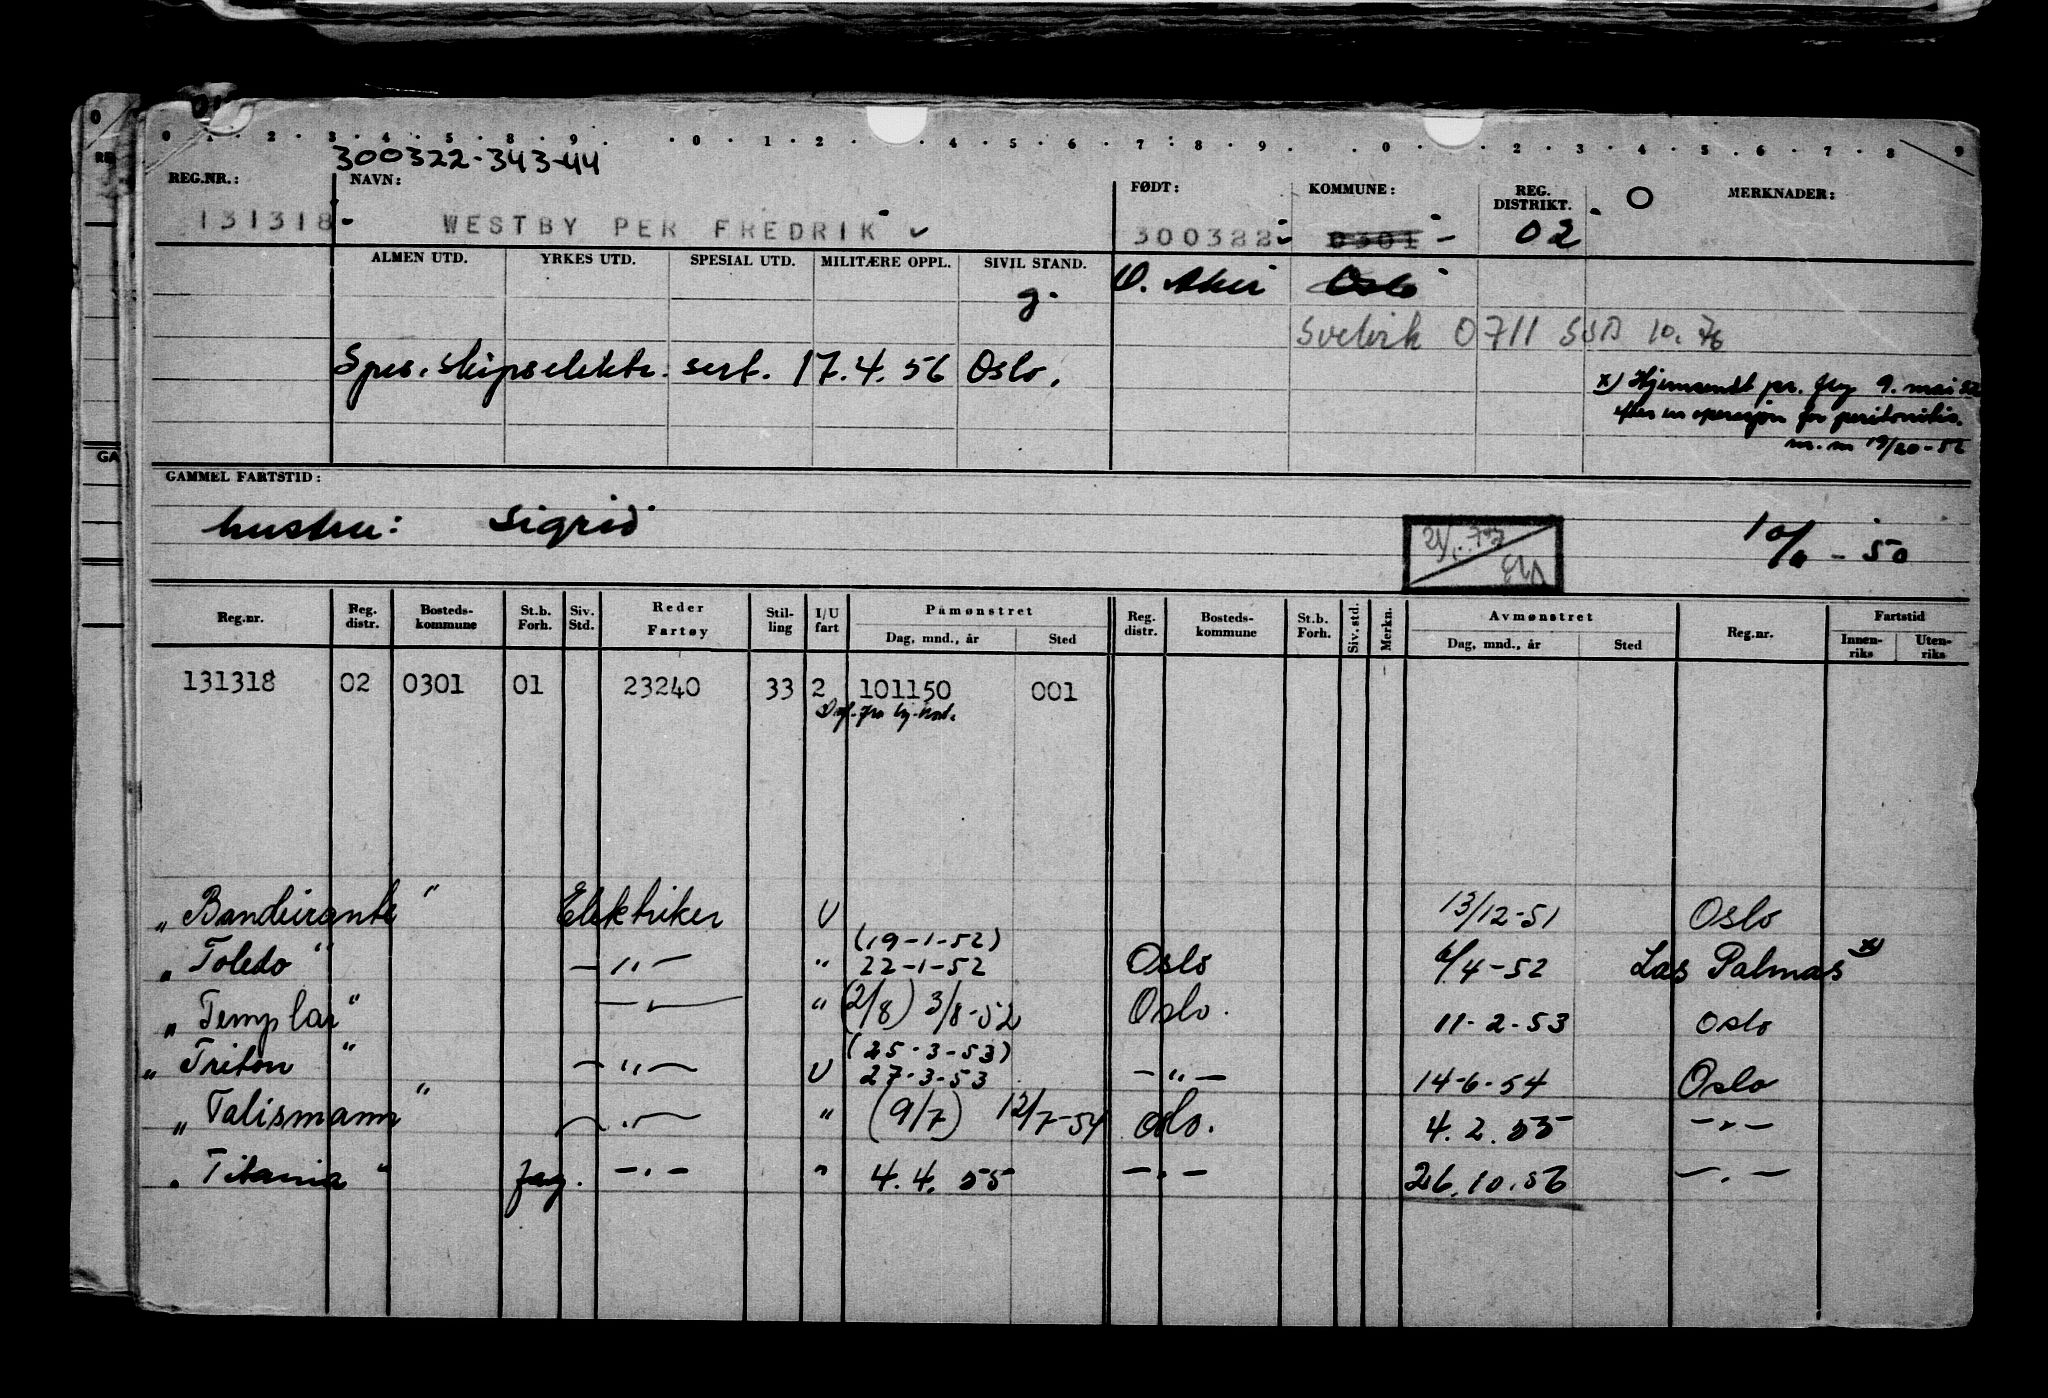 300322-343-44
REG.NR.: NAVN: FØDT: KOMMUNE: REG. DISTRIKT. MERKNADER:
131318 - WESTBY PER FREDRIK 300322 0301 - 02
ALMEN UTD. YRKES UTD. SPESIAL UTD. MILITÆRE OPPL. SIVIL STAND.
g. V. Aker Oslo
Svelvik 0711 SSB 10.76
Spes. skipselektr. sert. 17.4.56 Oslo.
x) Hjemsendt pr. fly 9. mai 52
efter en operasjon for peritonitis.
19/20-52
GAMMEL FARTSTID:
hustru: Sigrid
50
Reg.nr. Reg. distr. Bosteds-kommune St.b. Forh. Siv. Std. Reder Fartøy Stil-ling I/U fart Påmønstret Dag, mnd., år Sted Reg. distr. Bosteds-kommune St.b. Forh. Siv. std. Merkn. Avmønstret Dag, mnd., år Sted Reg.nr. Fartstid Innen-riks Uten-riks
131318 02 0301 01 23240 33 2 101150 001
"Bandeirante" Elektriker U 13/12-51 Oslo
(19-1-52)
"Toledo" - " - " 22-1-52 Oslo 6/4-52 Las Palmas x)
"Templar" - " - " (2/8) 3/8-52 Oslo. 11-2-53 Oslo
(25-3-53)
"Triton" - " - U 27-3-53 - " - 14-6-54 Oslo
"Talismann" - " - " (9/7) 12/7-54 Oslo. 4.2.55 - " -
"Titania" fag. - " - " 4.4.55 - " - 26.10.56 - " -